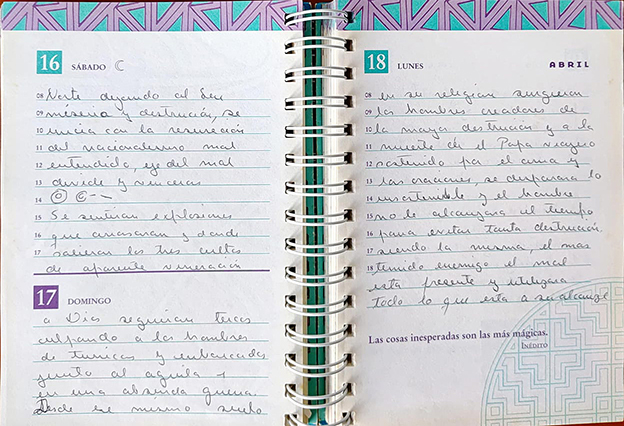 16 SÁBADO
08 Norte dejando al Sur
09 miseria y destrucción, se
10 inicia con la resurección
11 del nacionalismo mal
12 entendido, eje del mal
13 divide y venceras
14
15 Se sentiran explosiones
16 que arrasaran y donde
17 salieran los tres cultos
de aparente veneración
17 DOMINGO
a Dios seguiran tercos
culpando a los hombres
de tunicas y embarcados
junto al aguila
en una absurda guerra.
Desde ese mismo suelo
18 LUNES ABRIL
08 en su religion surgieran
09 los hombres creadores de
10 la mayor destrucción y a la
11 muerte de el Papa viajero
12 sostenido por el ama y
13 las oraciones, se disparara lo
14 inevitable y el hombre
15 no le alcanzara el tiempo
16 para evitar tanta destrucción.
17 siendo la misma, el mas
18 temido enemigo el mal
esta presente y utilizara
todo lo que esta a su alcance
Las cosas inesperadas son las más mágicas.
INÉDITO